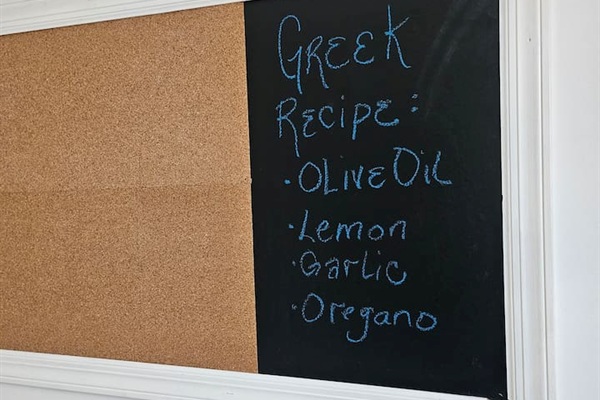 GREEK
RECIPE:
· OLIVE OIL
· Lemon
· Garlic
· Oregano